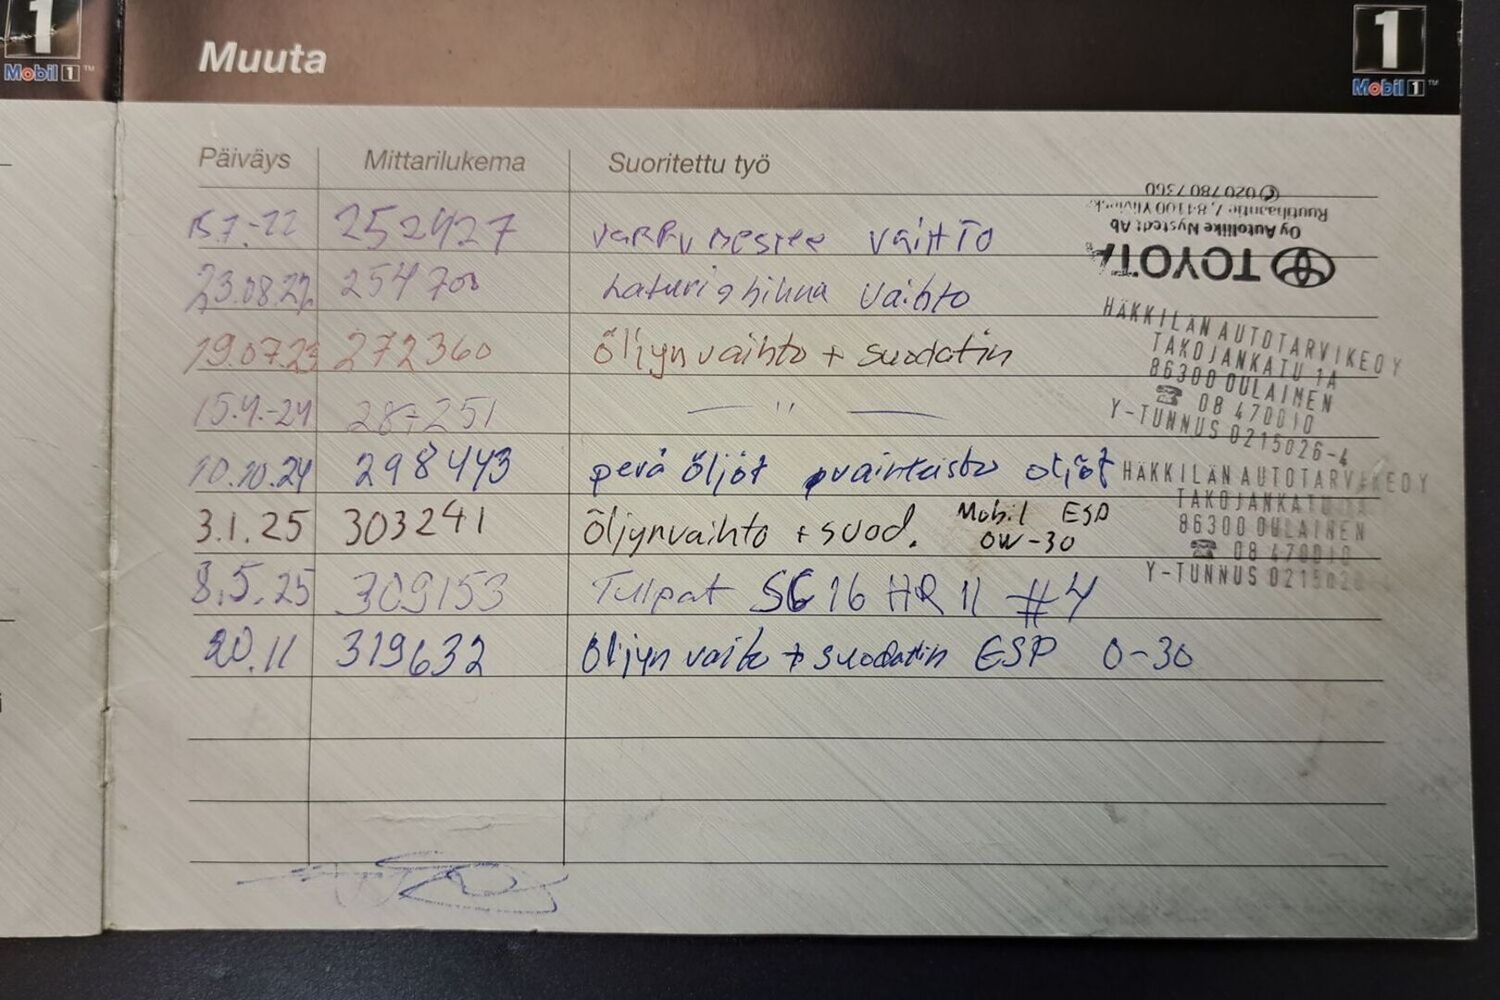 1
Mobil 1™
Muuta
1
Mobil 1™
Päiväys Mittarilukema Suoritettu työ
15.7.-22 252427 vaihto
23.08.22 254700 Laturi hihna vaihto
19.07.23 272360 öljynvaihto + suodatin
15.4.-24 287251 — " —
10.10.24 298443 perä öljöt öljöt
3.1.25 303241 Öljynvaihto + suod. Mobil ESP 0W-30
8.5.25 309153 Tulpat SC16HR11 #4
20.11 319632 öljyn vaito + suodatin ESP 0-30
TOYOTA
Oy Autoliike Nystedt Ab
Ruutihaantie 7, 84100 Ylivieska
✆ 020 780 7360
HÄKKILÄN AUTOTARVIKE OY
TAKOJANKATU 1A
86300 OULAINEN
☎ 08 470010
Y-TUNNUS 0215026-4
HÄKKILÄN AUTOTARVIKE OY
TAKOJANKATU
86300 OULAINEN
☎ 08 470010
Y-TUNNUS 0215026